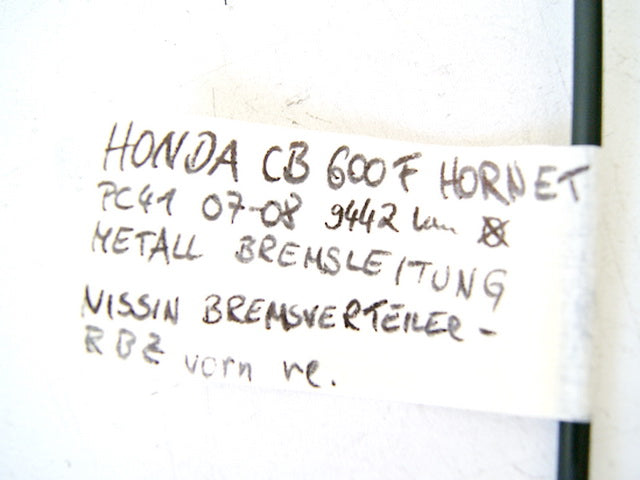 HONDA CB 600F HORNET
PC41 07-08 9442 km
METALL BREMSLEITUNG
NISSIN BREMSVERTEILER -
RBZ vorn re.